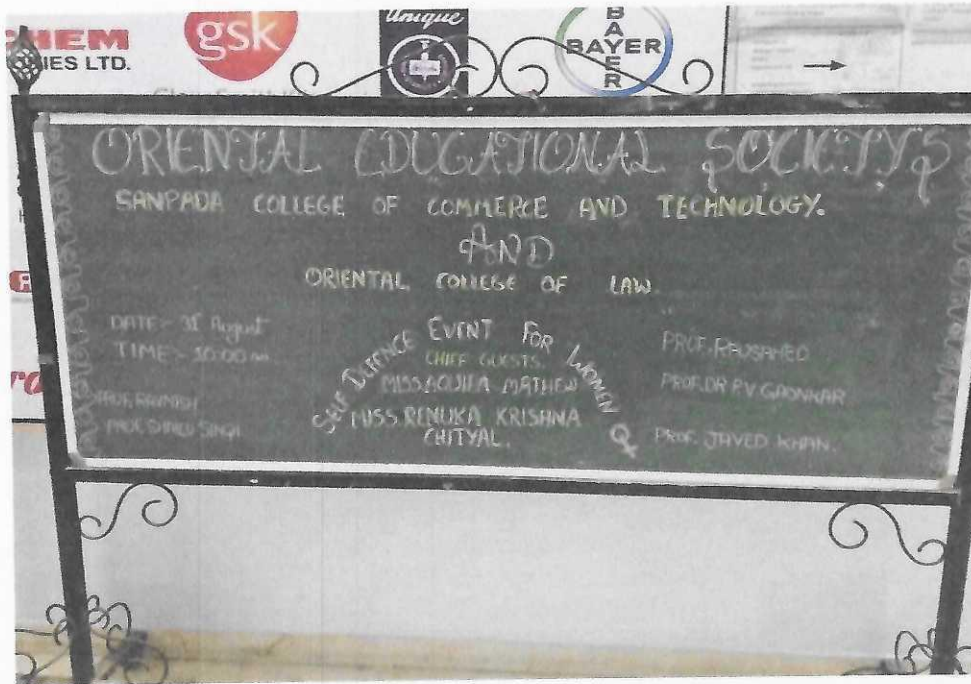 HEM
IES LTD.
gsk
Unique
BAYER
BAYER
ORIENTAL EDUCATIONAL SOCIETY'S
SANPADA COLLEGE OF COMMERCE AND TECHNOLOGY.
AND
ORIENTAL COLLEGE OF LAW.
DATE:- 31st August
TIME:- 10:00 am
SELF DEFENCE EVENT FOR WOMEN
CHIEF GUESTS.
MISS AQUILA MATHEW
MISS RENUKA KRISHNA
CHITYAL.
PROF.
PROF. SINGH
PROF.
PROF.DR P.V GAONKAR
PROF. JAVED KHAN.